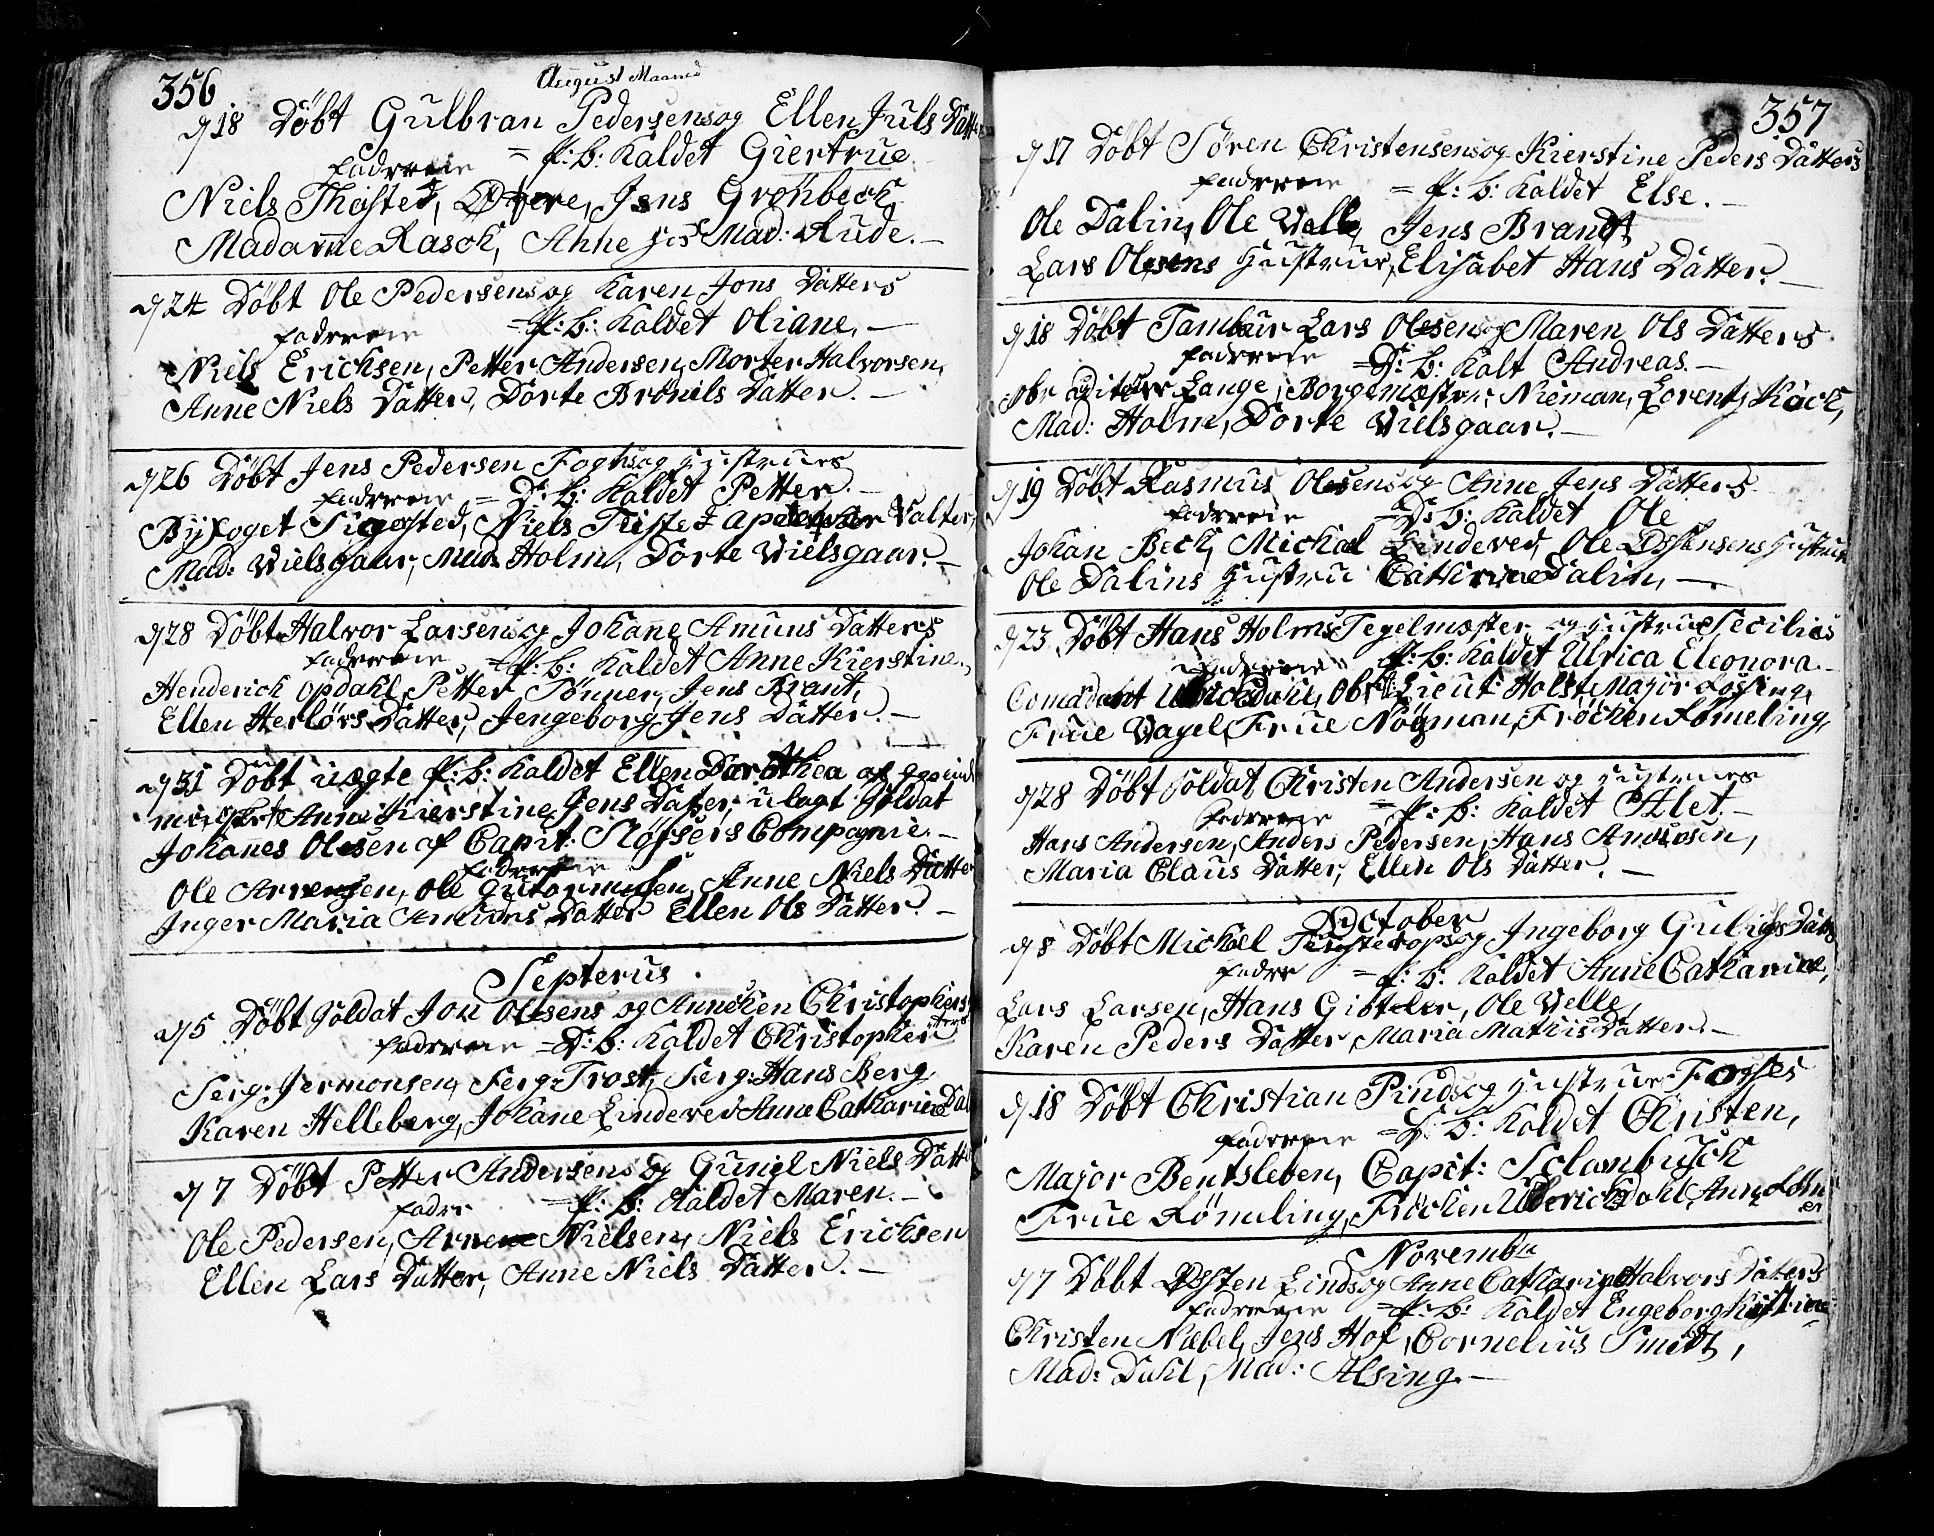 356
August Maaned
d 18 Døbt Gulbran Pedersens og Ellen Juls Datter
fadrene = P: b: kaldet Giertrue.
Niels Thisted, Jens Grønbeck,
Madame Rasch, Anne Mad: Rude. —
d 24 Døbt Ole Pedersens og Karen Jons Datters
fadrene = P: b: kaldet Oliane. —
Niels Ericksen, Petter Andersen, Morten Halvorsen,
Anne Niels Datter, Dorte Brønils Datter. —
d 26 Døbt Jens Pedersen Foghs og Hustrues
fadrene = D: b: kaldet Petter. —
Byfoget Sigested, Niels Tisted Apoteker Valter,
Mad: Vielsgaar, Mad: Holm, Dorte Vielsgaar. —
d 28 Døbt Halvor Larsens og Johanne Amuns Datters
fadrene = P: b: kaldet Anne Kierstine,
Henderick Opdahl, Petter Tønner, Jens Brant,
Ellen Herlørs Datter, Jengeborg Jens Datter. —
d 31 Døbt uægte P: b: kaldet Ellen Dorothea af
Anne Kierstine Jens Datter, ulagt Soldat
Johanes Olesen af Capit: Sløfsers Compagnie. —
fadrene
Ole Arvensen, Ole Gutormusen, Anne Niels Datter
Inger Maria Amuns Datter Ellen Ols Datter. —
Septerus
d 5 Døbt Soldat Jon Olesens og Anneken Christophers
ters
fadrene = D: b: kaldet Christopher
Serg: Jermonsen, Serg: Trost, Serg: Hans Berg,
Karen Helleberg, Johane Lindeved Anne Catharine Dal
d 7 Døbt Petter Andersens og Guniel Niels Datt
fadre = P: b: kaldet Maren. —
Ole Pedersen, Arne Nielsen, Niels Ericksen
Ellen Lars Datter, Anne Niels Datter. —
357
d 17 Døbt Søren Christensens og Kierstine Peders Datters
fadrene = P: b: kaldet Else. —
Ole Dalin, Ole Velle, Jens Brandt
Lars Olesens Hustrue, Elisabet Hans Datter. —
d 18 Døbt Tambur Lars Olesens og Maren Ols Datters
fadrene = D: b: kalt Andreas. —
Obr Auditør Lange, Borgemæster Nieman, Lorentz Køck,
Mad: Holm, Dorte Vielsgaar. —
d 19 Døbt Rasmus Olesens og Anne Jens Datters
fadrene = D: b: kaldet Ole
Johan Beck, Michal Lindeved, Ole Hustrue
Ole Dalins Hustru Catherine Dalin, —
d 23 Døbt Hans Holms Tegelmæster og Hustrue Secilies
fadrene P: b: kaldet Ulrica Eleonora.
Comadant Obr: Lieut: Holst, Major Løssing,
Frue Vagel, Frue Nøgman, Frøcken Rømeling,
d 28 Døbt Soldat Christen Andersen og Hustrues
fadrene = P: b: kaldet Atlet. —
Hans Andersen, Anders Pedersen, Hans Amosen,
Maria Claus Datter, Ellen Ols Datter. —
October
d 8 Døbt Michael og Ingeborg Gulichs Datt
fadre = P: b: kaldet Anne Catharine,
Lars Larsen, Hans Gibteler, Ole Velle,
Karen Peders Datter, Maria Mathis Datter. —
d 18 Døbt Christian Pinds og Hustrue Fosses
fadrene = D: b: kaldet Christen,
Major Bentsleben, Capit: Solanbusch
Frue Rømeling, Frøcken Ulderichdahl, Anne
November
d 7 Døbt Østen Linds og Anne Catharine Halvors Daters
fadrene = P: b: kaldet Engeborg Kistine
Christen Næbel, Jens Hof, Cornelius Smidt,
Mad: Dahl, Mad: Alsing. —